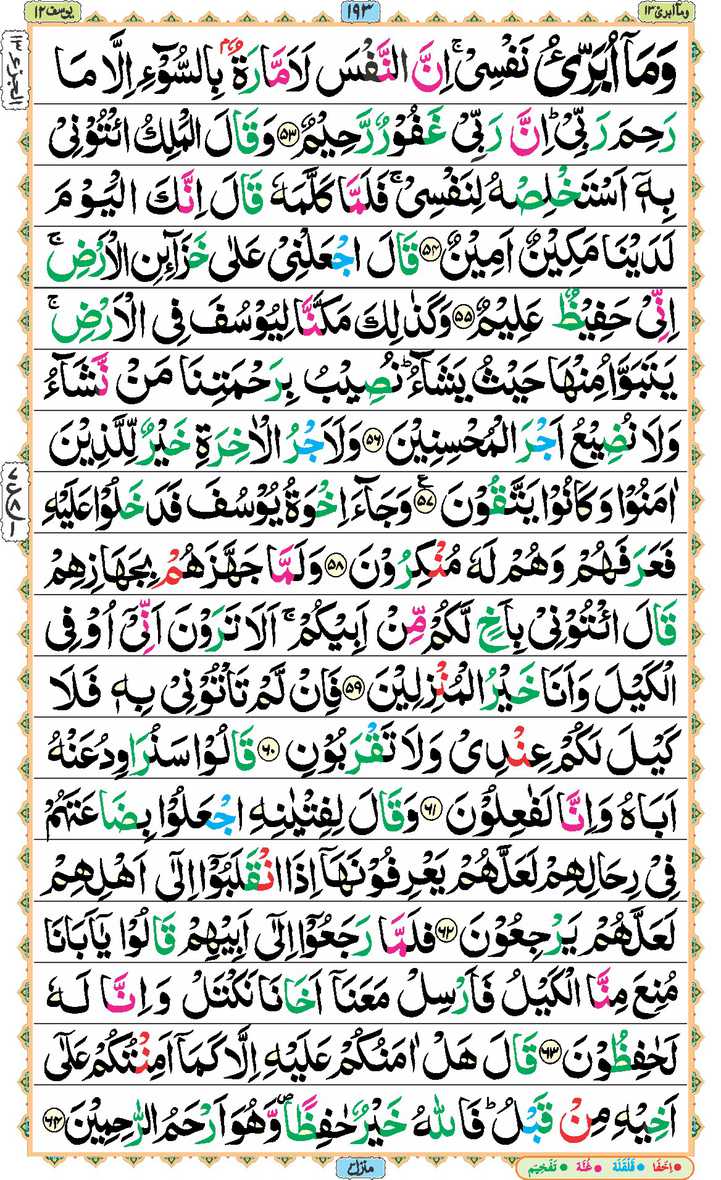 وما ابرئ ١٣
١٩٣
يوسف ١٢
الجزء ١٣
وَمَاۤ اُبَرِّئُ نَفْسِیْ ۚ اِنَّ النَّفْسَ لَاَمَّارَةٌۢ بِالسُّوْٓءِ اِلَّا مَا
رَحِمَ رَبِّیْ ؕ اِنَّ رَبِّیْ غَفُوْرٌ رَّحِیْمٌ ﴿۵۳﴾ وَقَالَ الْمَلِكُ ائْتُوْنِیْ
بِهٖۤ اَسْتَخْلِصْهُ لِنَفْسِیْ ۚ فَلَمَّا كَلَّمَهٗ قَالَ اِنَّكَ الْیَوْمَ
لَدَیْنَا مَكِیْنٌ اَمِیْنٌ ﴿۵۴﴾ قَالَ اجْعَلْنِیْ عَلٰی خَزَآئِنِ الْاَرْضِ ۚ
اِنِّیْ حَفِیْظٌ عَلِیْمٌ ﴿۵۵﴾ وَكَذٰلِكَ مَكَّنَّا لِیُوْسُفَ فِی الْاَرْضِ ۚ
یَتَبَوَّاُ مِنْهَا حَیْثُ یَشَآءُ ؕ نُصِیْبُ بِرَحْمَتِنَا مَنْ نَّشَآءُ
وَلَا نُضِیْعُ اَجْرَ الْمُحْسِنِیْنَ ﴿۵۶﴾ وَلَاَجْرُ الْاٰخِرَةِ خَیْرٌ لِّلَّذِیْنَ
اٰمَنُوْا وَكَانُوْا یَتَّقُوْنَ ﴿۵۷﴾ وَجَآءَ اِخْوَةُ یُوْسُفَ فَدَخَلُوْا عَلَیْهِ
فَعَرَفَهُمْ وَهُمْ لَهٗ مُنْكِرُوْنَ ﴿۵۸﴾ وَلَمَّا جَهَّزَهُمْ بِجَهَازِهِمْ
قَالَ ائْتُوْنِیْ بِاَخٍ لَّكُمْ مِّنْ اَبِیْكُمْ ۚ اَلَا تَرَوْنَ اَنِّیْۤ اُوْفِی
الْكَیْلَ وَاَنَا خَیْرُ الْمُنْزِلِیْنَ ﴿۵۹﴾ فَاِنْ لَّمْ تَاْتُوْنِیْ بِهٖ فَلَا
كَیْلَ لَكُمْ عِنْدِیْ وَلَا تَقْرَبُوْنِ ﴿۶۰﴾ قَالُوْا سَنُرَاوِدُ عَنْهُ
اَبَاهُ وَاِنَّا لَفٰعِلُوْنَ ﴿۶۱﴾ وَقَالَ لِفِتْیٰنِهِ اجْعَلُوْا بِضَاعَتَهُمْ
فِیْ رِحَالِهِمْ لَعَلَّهُمْ یَعْرِفُوْنَهَاۤ اِذَا انْقَلَبُوْۤا اِلٰۤی اَهْلِهِمْ
لَعَلَّهُمْ یَرْجِعُوْنَ ﴿۶۲﴾ فَلَمَّا رَجَعُوْۤا اِلٰۤی اَبِیْهِمْ قَالُوْا یٰۤاَبَانَا
مُنِعَ مِنَّا الْكَیْلُ فَاَرْسِلْ مَعَنَاۤ اَخَانَا نَكْتَلْ وَاِنَّا لَهٗ
لَحٰفِظُوْنَ ﴿۶۳﴾ قَالَ هَلْ اٰمَنُكُمْ عَلَیْهِ اِلَّا كَمَاۤ اَمِنْتُكُمْ عَلٰۤی
اَخِیْهِ مِنْ قَبْلُ ؕ فَاللّٰهُ خَیْرٌ حٰفِظًا ۪ وَّهُوَ اَرْحَمُ الرّٰحِمِیْنَ ﴿۶۴﴾
منزل ۳
اِخْفَا • قَلْقَلَة • غُنَّة • تَفْخِيْم